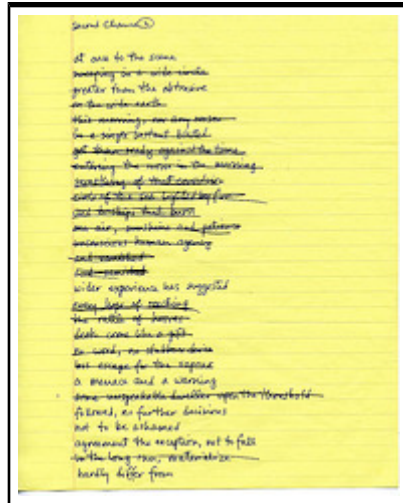 Second Chance ②
at one to the scene
sweeping in a wide circle
greater than the obtrusive
in the wide earth
this morning, nor any
in a single instant
get them ready against the time
entering the in the morning
something of that
circle of the lighted by fire
and ships that burn
air, sunshine and patience
human agency
wider experience has suggested
every hope of reaching
the rattle of hooves
death come like a gift
no word, no
but escape for the
a menace and a warning
some unspeakable dweller upon the threshold
followed, as further decisions
not to be ashamed
agreement the exception, not to fall
in the long run, materialize
hardly differ from